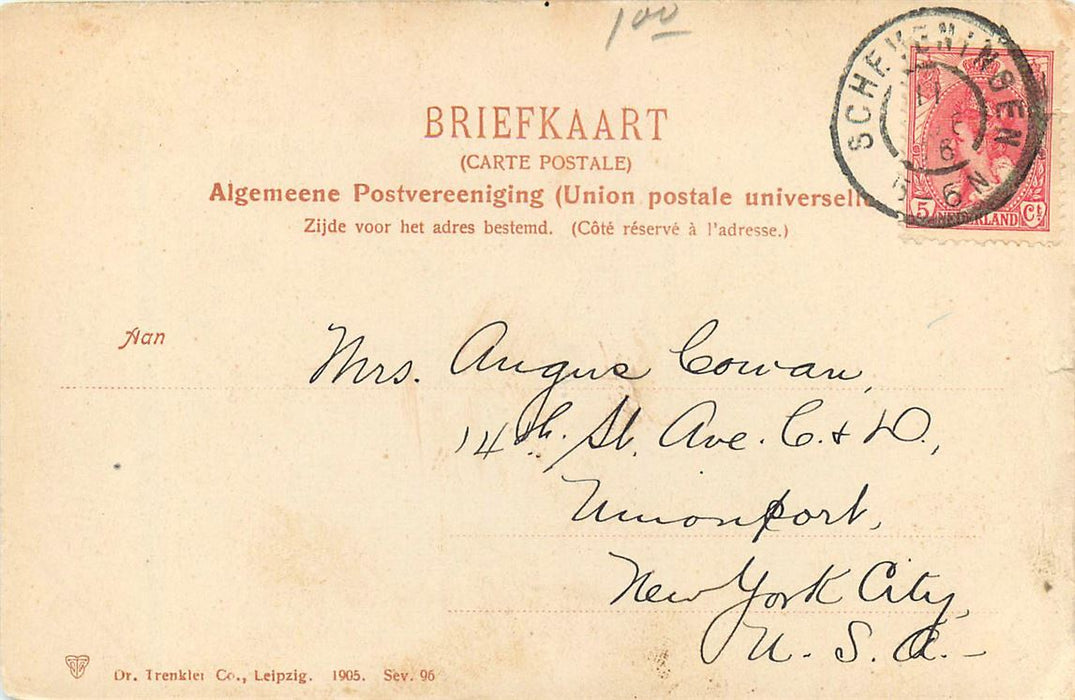 100
BRIEFKAART
(CARTE POSTALE)
Algemeene Postvereeniging (Union postale universelle
Zijde voor het adres bestemd. (Côté réservé à l'adresse.)
SCHEVENINGEN
6 N
5 NEDERLAND Ct
Aan
Mrs. Angus Cowan,
14th. St. Ave. C. & D.,
Unionport,
New York City,
U. S. A. -
Dr. Trenkler Co., Leipzig. 1905. Sev. 96